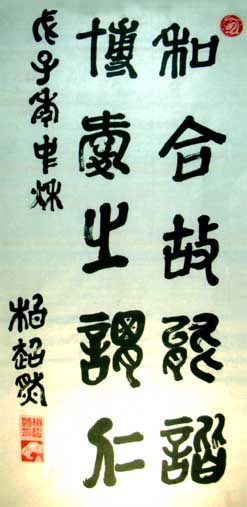 和合故能諧
博愛之謂仁
戊子年中秋
柏超然